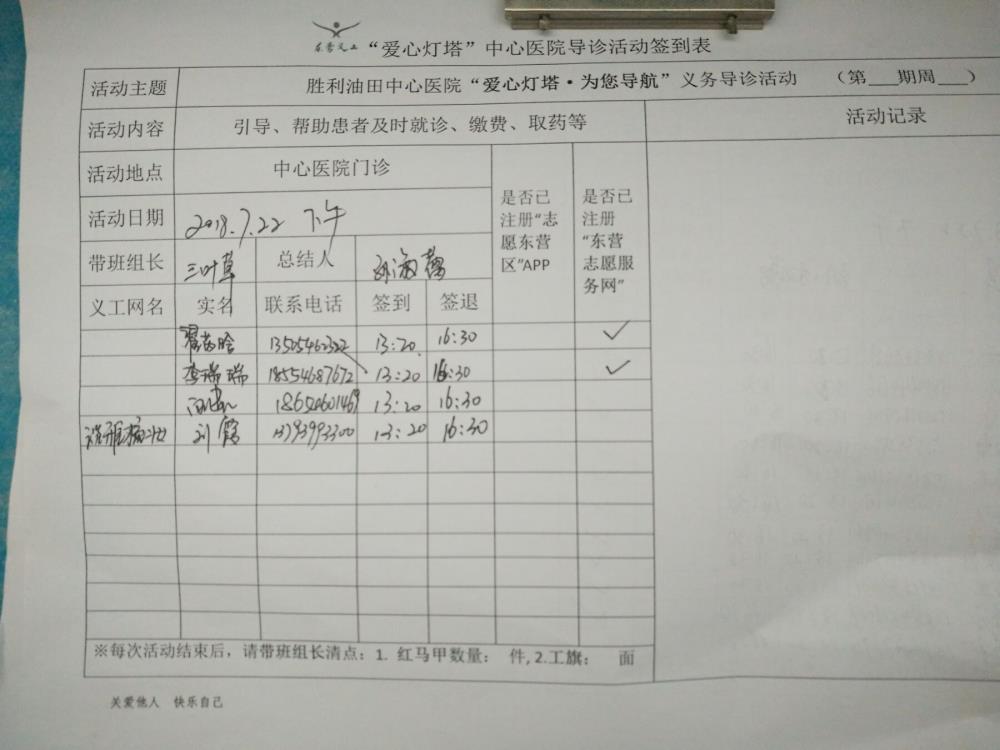 东营义工 “爱心灯塔”中心医院导诊活动签到表
活动主题 胜利油田中心医院“爱心灯塔·为您导航”义务导诊活动 （第___期周___）
活动内容 引导、帮助患者及时就诊、缴费、取药等 活动记录
活动地点 中心医院门诊 是否已注册“志愿东营区”APP 是否已注册“东营志愿服务网”
活动日期 2018.7.22 下午
带班组长 三叶草 总结人
义工网名 实名 联系电话 签到 签退
13505462322 13:20 16:30 ✓
李瑞瑞 18554687672 13:20 16:30 ✓
13:20 16:30
刘 13793993300 13:20 16:30
※每次活动结束后，请带班组长清点：1. 红马甲数量： 件，2.工旗： 面
关爱他人 快乐自己